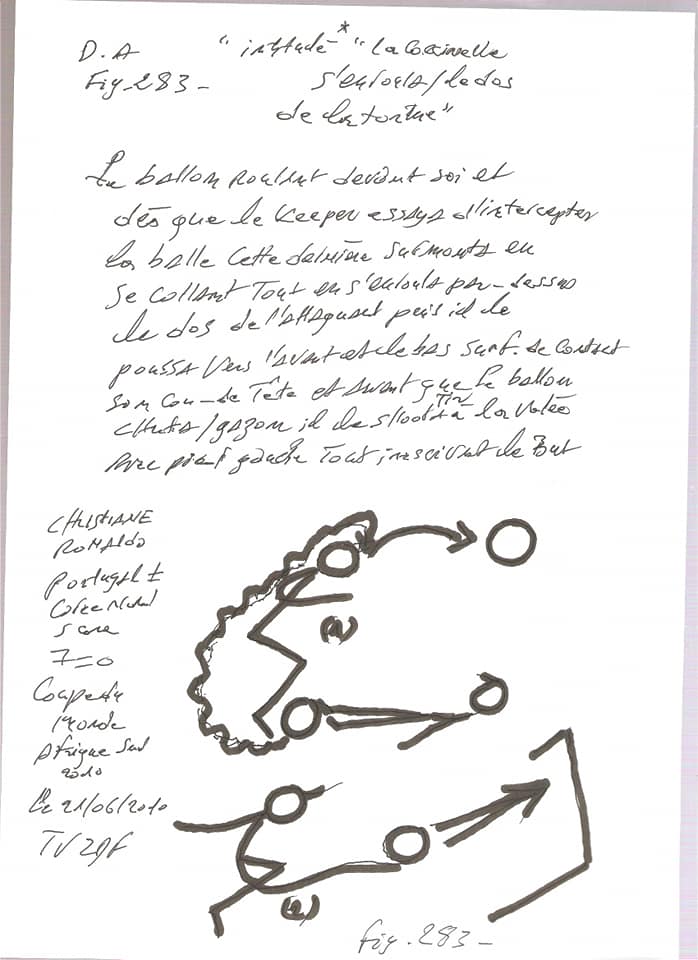 D.A "intitulé * "La Coccinelle
Fig_283_ s'envola/le dos
de la tortue"
Le ballon roulant devant soi et
dès que le Keeper essaye d'intercepter
la balle cette dernière surmonta en
se collant Tout en s'envola par-dessus
le dos de l'attaquant puis il le
poussa vers l'avant et le bas surf. de contact
son cou-de Tête et avant que le ballon
chuta/gazon il le shoota à la volée
Tir
avec pied gauche Tout inscrivant le But
CHRISTIANE
RONALDO
Portugal ±
Corée Nord
Score
7=0
Coupe du
Monde
Afrique Sud
2010
Le 21/06/2010
(a)
(e)
Fig. 283_